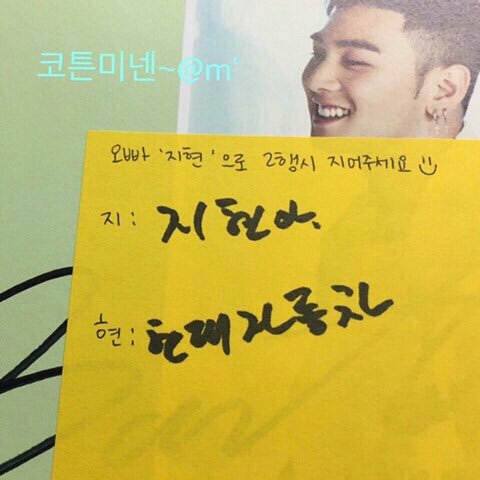 코튼미넨~@m'
오빠 '지현'으로 2행시 지어주세요
지: 지현아.
현: 현대자동차